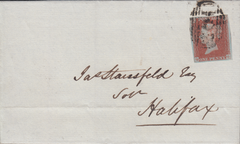 Jas Stansfeld Esq
Solr
Halifax